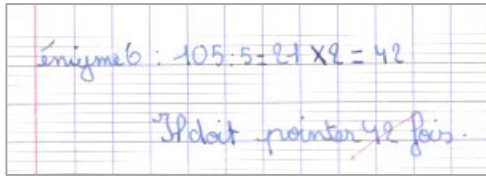 énigme 6 : 105:5=21 x2 = 42
Il doit pointer 42 fois.